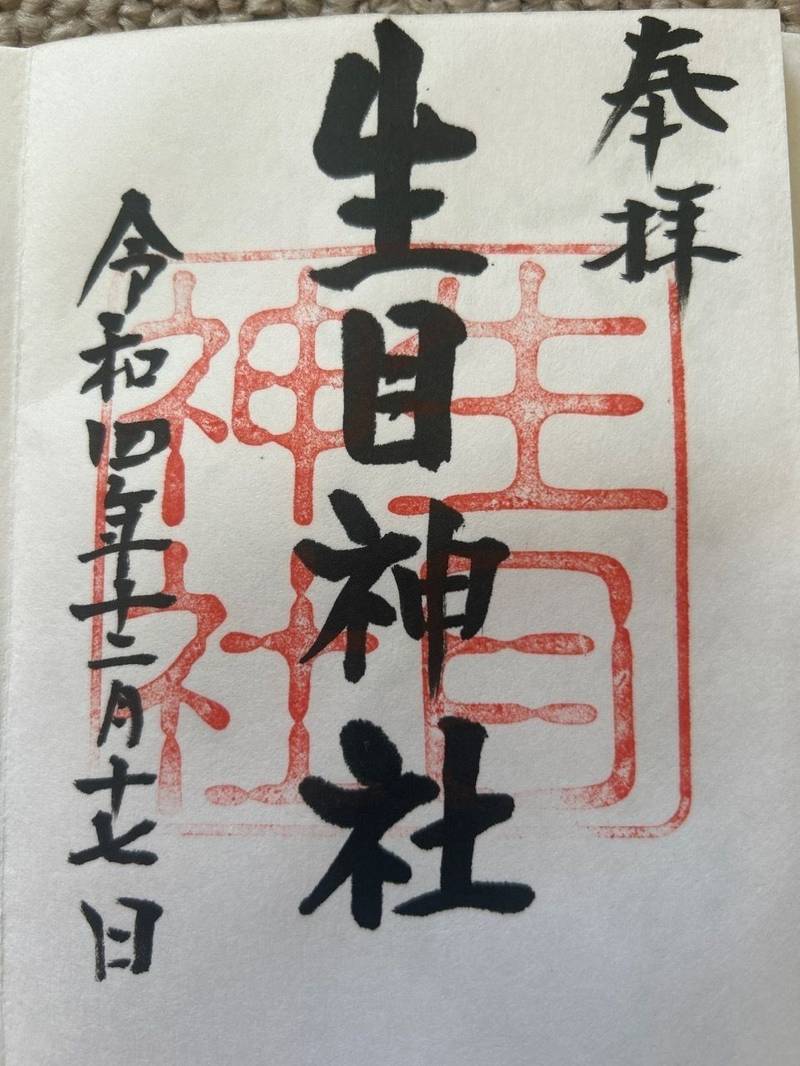 奉拝
生目神社
令和四年十二月十七日
生目神社